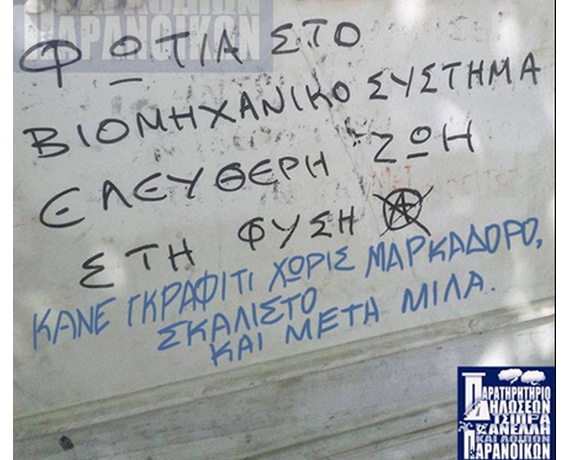 ΠΑΡΑΝΟΙΚΩΝ
ΦΩΤΙΑ ΣΤΟ
ΒΙΟΜΗΧΑΝΙΚΟ ΣΥΣΤΗΜΑ
ΕΛΕΥΘΕΡΗ ΖΩΗ
ΣΤΗ ΦΥΣΗ Ⓐ
ΚΑΝΕ ΓΚΡΑΦΙΤΙ ΧΩΡΙΣ ΜΑΡΚΑΔΟΡΟ,
ΣΚΑΛΙΣΤΟ
ΚΑΙ ΜΕΤΑ ΜΙΛΑ.
ΠΑΡΑΤΗΡΗΤΗΡΙΟ
ΔΗΛΩΣΕΩΝ
ΤΣΙΠΡΑ
ΚΑΝΕΛΛΗ
ΚΑΙ ΛΟΙΠΩΝ
ΠΑΡΑΝΟΙΚΩΝ